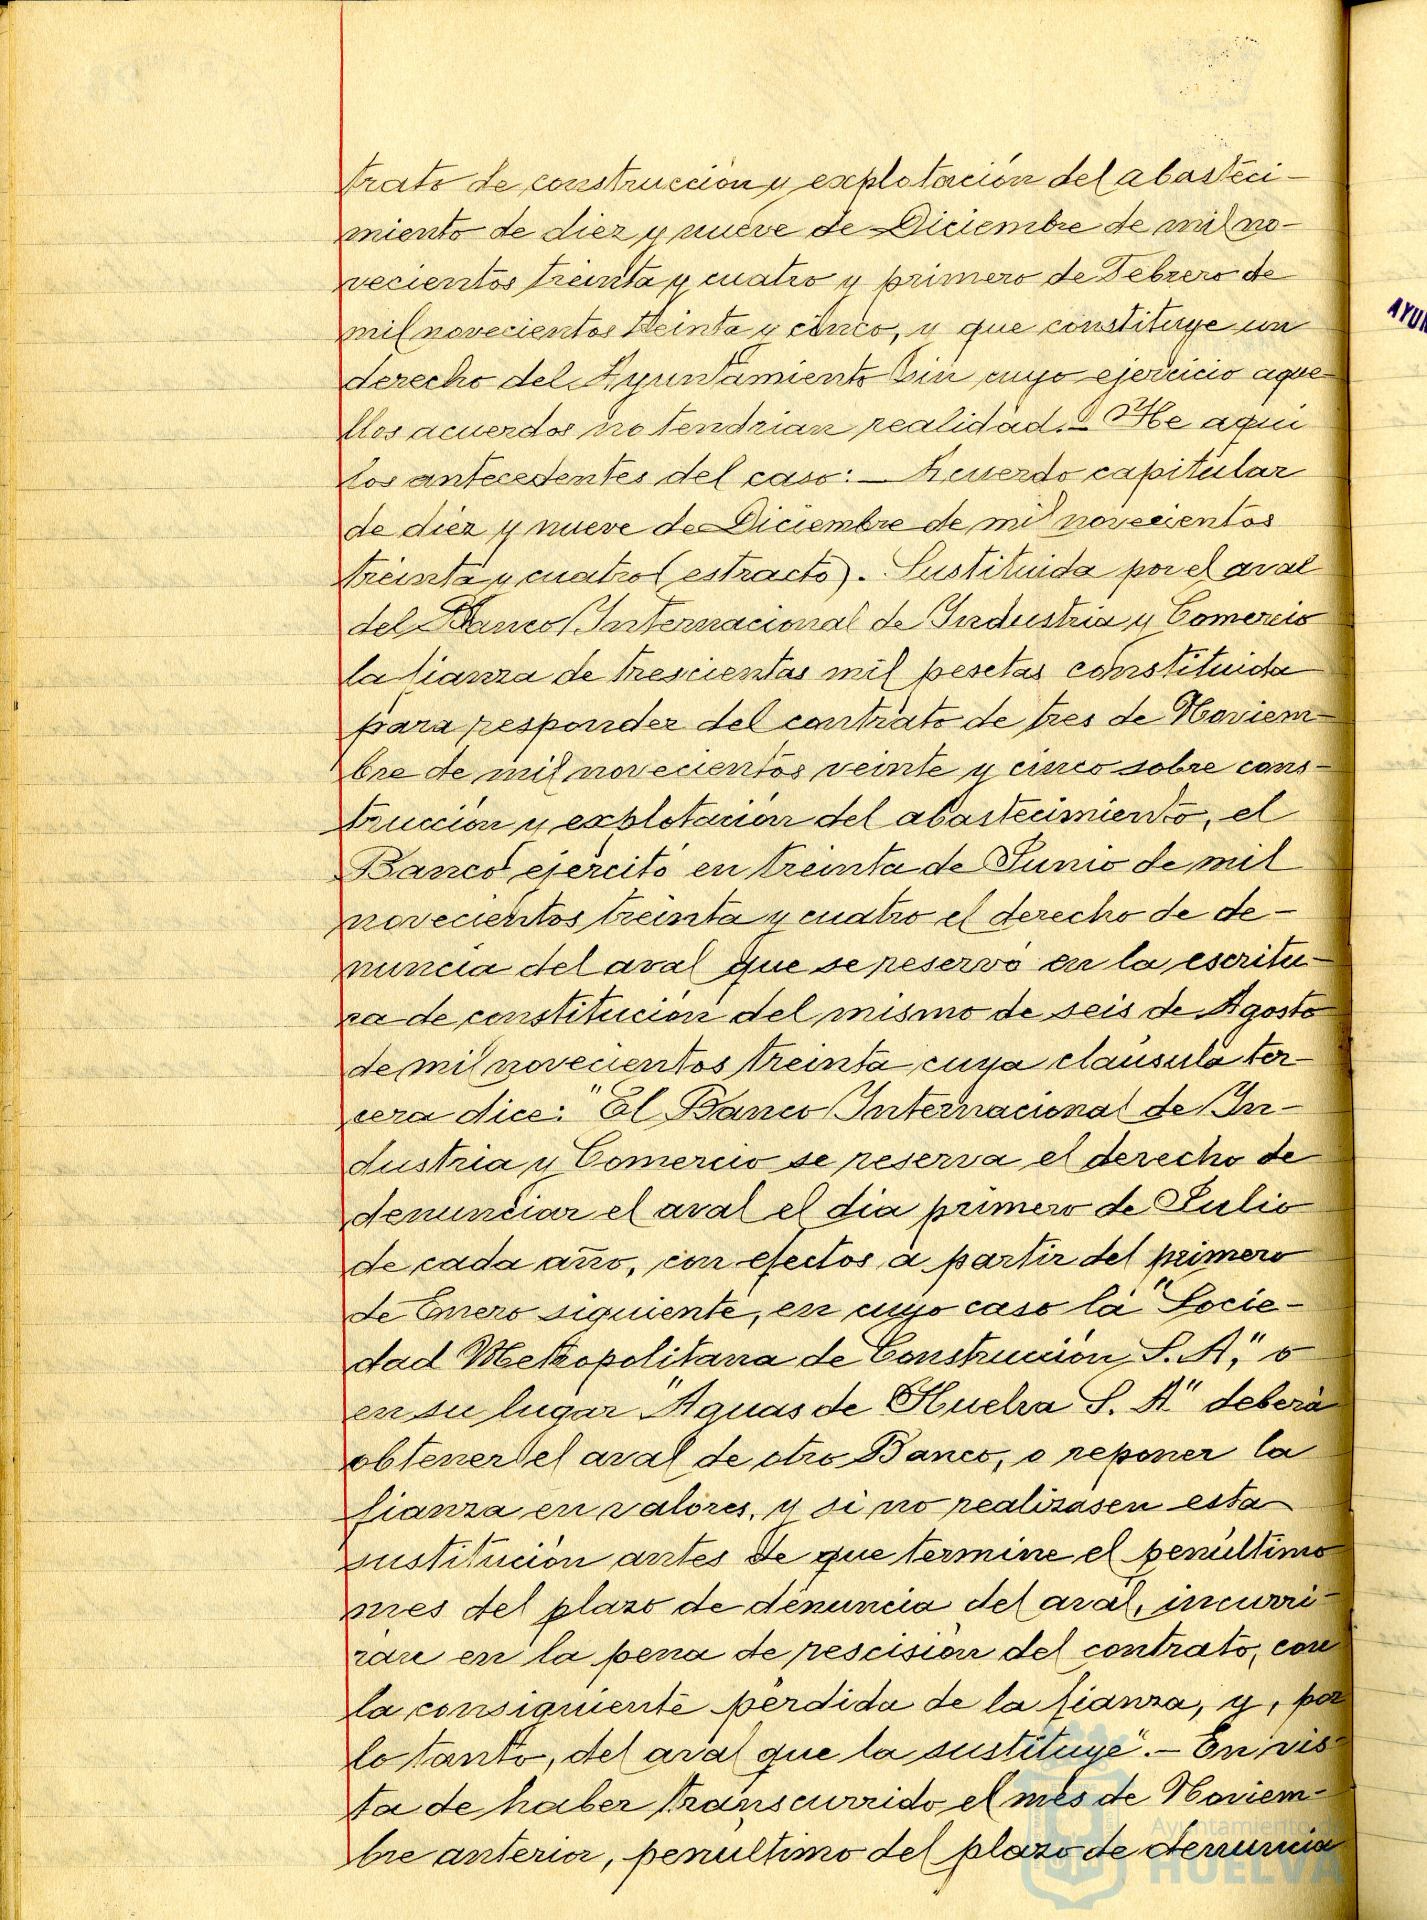 trato de construcción y explotación del abasteci-
miento de diez y nueve de Diciembre de mil no-
vecientos treinta y cuatro y primero de Febrero de
mil novecientos treinta y cinco, y que constituye un
derecho del Ayuntamiento sin cuyo ejercicio aque-
llos acuerdos no tendrian realidad.- He aqui
los antecedentes del caso:- Acuerdo capitular
de diez y nueve de Diciembre de mil novecientos
treinta y cuatro (estracto). Sustituida por el aval
del Banco Internacional de Industria y Comercio
la fianza de trescientas mil pesetas constituida
para responder del contrato de tres de Noviem-
bre de mil novecientos veinte y cinco sobre cons-
trucción y explotación del abastecimiento, el
Banco ejercitó en treinta de Junio de mil
novecientos treinta y cuatro el derecho de de-
nuncia del aval que se reservó en la escritu-
ra de constitución del mismo de seis de Agosto
de mil novecientos treinta cuya cláusula ter-
cera dice: "El Banco Internacional de In-
dustria y Comercio se reserva el derecho de
denunciar el aval el dia primero de Julio
de cada año, con efectos a partir del primero
de Enero siguiente, en cuyo caso la "Socie-
dad Metropolitana de Construcción, S. A," o
en su lugar "Aguas de Huelva S. A" deberá
obtener el aval de otro Banco, o reponer la
fianza en valores, y si no realizasen esta
sustitución antes de que termine el penúltimo
mes del plazo de denuncia del aval, incurri-
rán en la pena de rescisión del contrato, con
la consiguiente pérdida de la fianza, y, por
lo tanto, del aval que la sustituye".- En vis-
ta de haber transcurrido el mes de Noviem-
bre anterior, penultimo del plazo de denuncia
AYUN
Ayuntamiento de
HUELVA